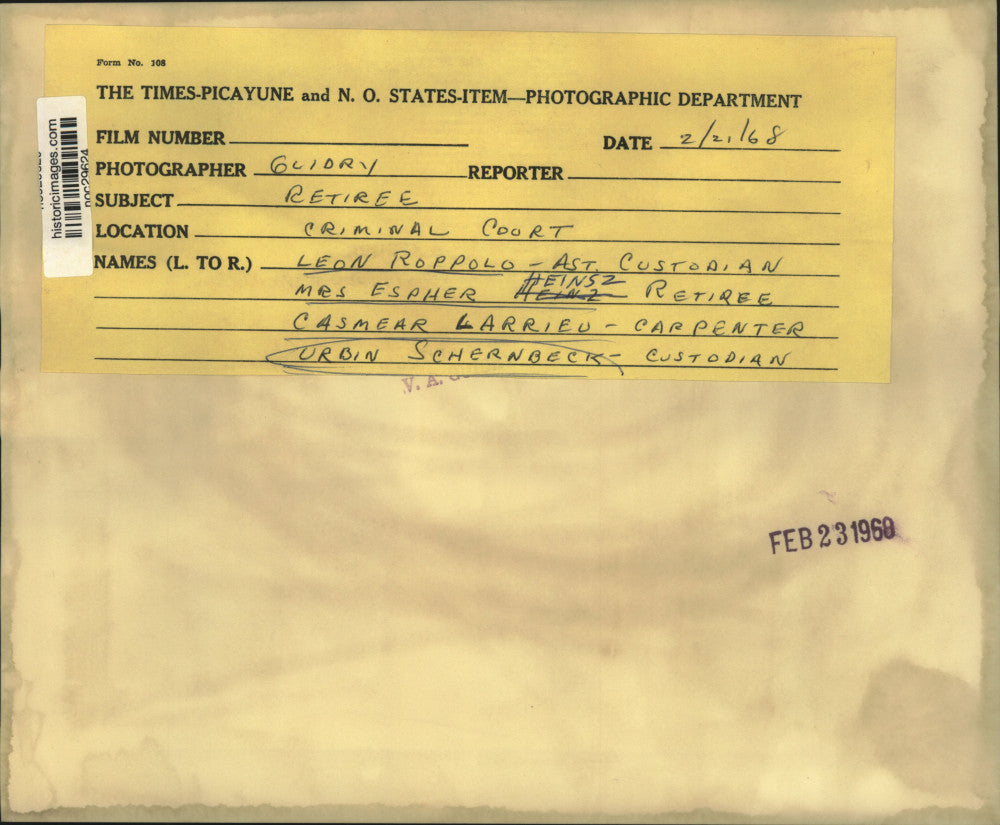 Form No. 108
THE TIMES-PICAYUNE and N. O. STATES-ITEM—PHOTOGRAPHIC DEPARTMENT
FILM NUMBER
DATE 2/21/68
PHOTOGRAPHER GUIDRY REPORTER
SUBJECT RETIREE
LOCATION CRIMINAL COURT
NAMES (L. TO R.) LEON ROPPOLO - AST. CUSTODIAN
HEINSZ
MRS ESPHER HEINZ RETIREE
CASMEAR LARRIEU - CARPENTER
URBIN SCHERNBECK - CUSTODIAN
V. A.
FEB 23 1968
historicimages.com
noc29624